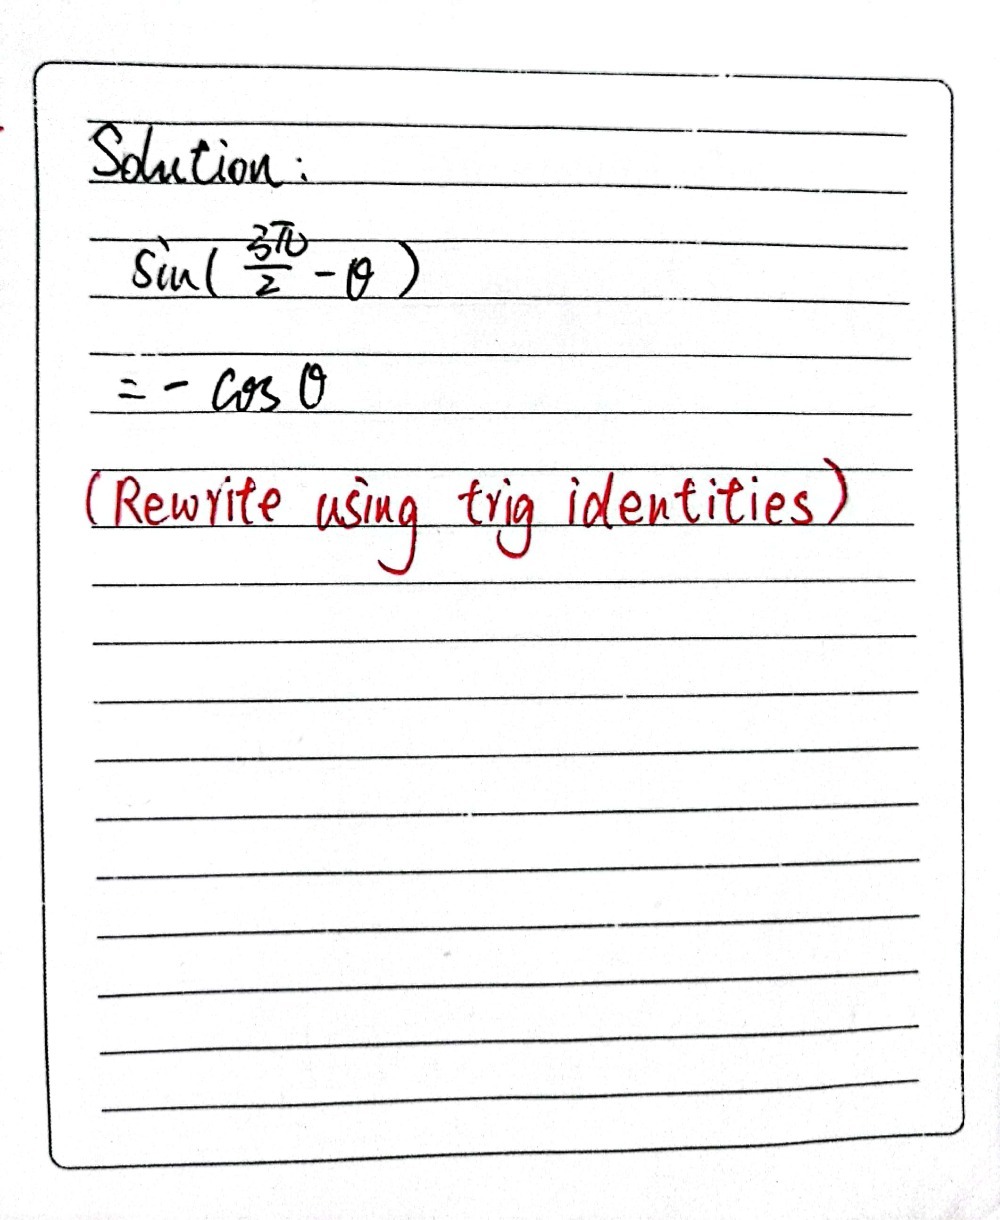 Solution:
sin( 3π/2 - θ )
= - cos θ
(Rewrite using trig identities)